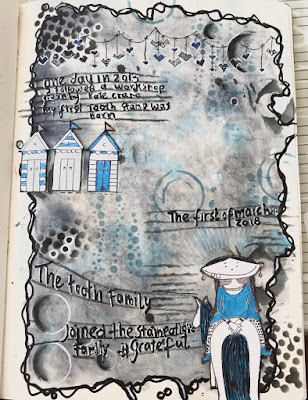 One day in 2015
I followed a workshop
given by Kate Crane
my first tooth stamp was
born
The first of march
2018
The tooth family
Joined the stampatique
family #grateful.